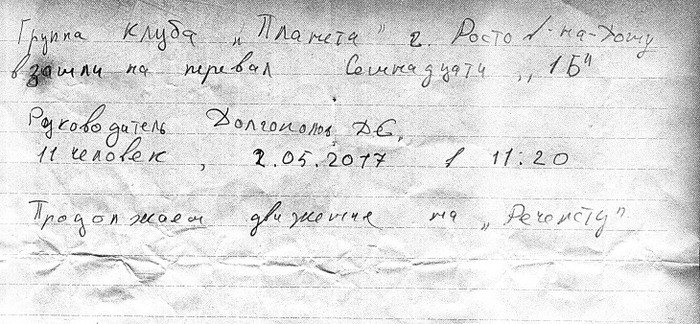 Группа клуба „Планета" г. Ростов-на-Дону
взошли на перевал Семнадцати „1Б"
Руководитель Долгополов Д.С.
11 человек, 2.05.2017 в 11:20
Продолжаем движение на „Речепсту"